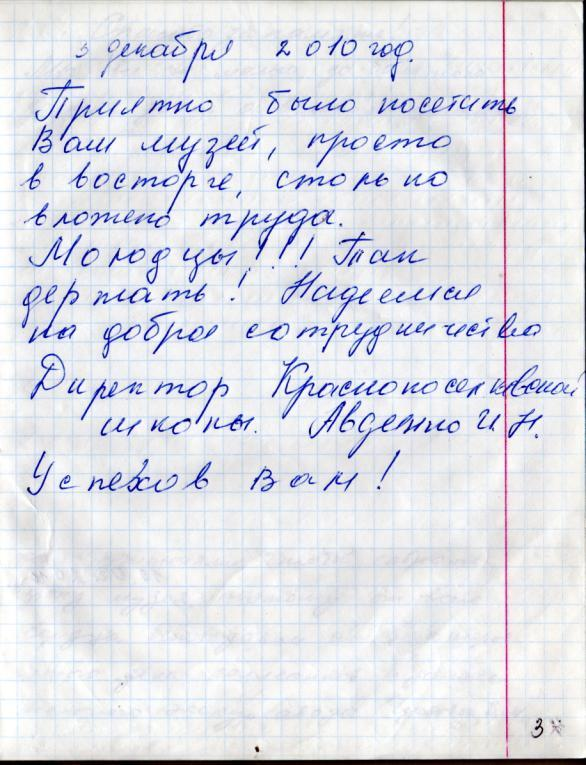 3 декабря 2010 год.
Приятно было посетить
Ваш музей, просто
в восторге, столько
вложено труда.
Молодцы!!! Так
держать! Надеемся
на доброе сотрудничество
Директор Краснопоселковской
школы. Авдейко И.Н.
Успехов Вам!
3